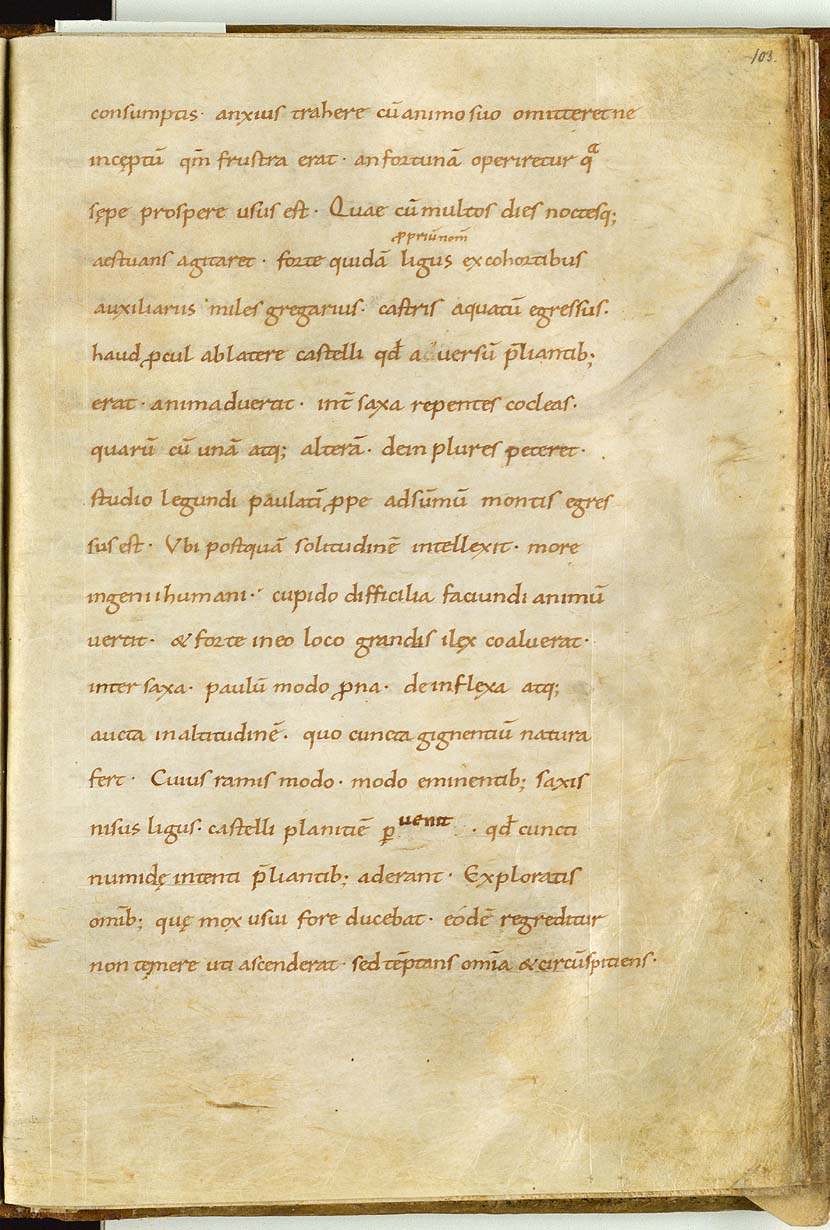 103.
consumptis· anxius trahere cū animo suo omitteret ne
incęptū qm̄ frustra erat· an fortunā operiretur qᵃ
sępe prospere usus est· Quae cū multos dies noctesq;
ꝓpriū nom̄
aestuans agitaret· forte quidā ligus ex cohortibus
auxiliariis miles gregarius· castris aquatū egressus·
haud ꝓcul ab latere castelli qđ aduersū p̄liantib;
erat· animaduertit· int̄ saxa repentes cocleas·
quarū cū unā atq; alterā· dein plures peteret·
studio legundi paulatī ꝓpe ad sūmū montis egres
sus est· Vbi postquā solitudinē intellexit· more
ingenii humani· cupido difficilia faciundi animū
uertit· & forte in eo loco grandis ilęx coaluerat·
inter saxa· paulū modo ꝓna· deinflęxa atq;
aucta in altitudinē· quo cuncta gignentiū natura
fert· Cuius ramis modo· modo eminentib; saxis
nisus ligus· castelli planitiē ꝑuenit· qđ cuncti
numidę intenti p̄liantib; aderant· Exploratis
omīb; quę mox usui fore ducebat· eódē regreditur
non tęmere uti ascenderat· sed tēptans omīa & circūspitiens·